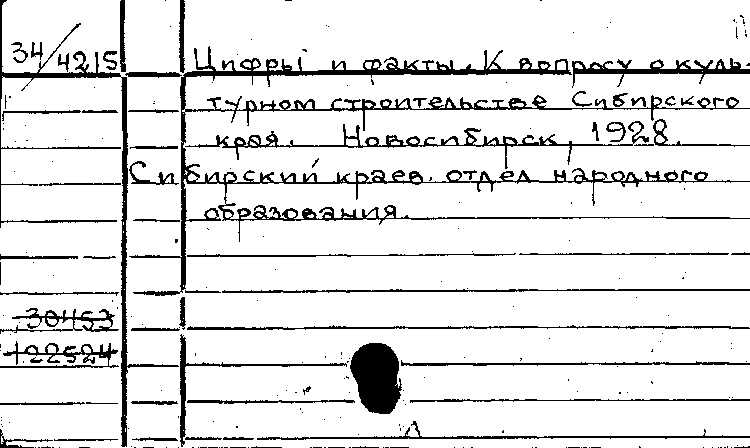 34/4215
Цифры и факты. К вопросу о куль-
турном строительстве Сибирского
края. Новосибирск, 1928.
Сибирский краев. отдел народного
образования.
30453
122524